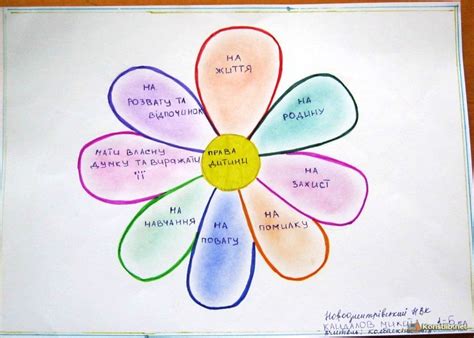 НА
ЖИТТЯ
НА
РОДИНУ
НА
ЗАХИСТ
НА
ПОМИЛКУ
НА
ПОВАГУ
НА
НАВЧАННЯ
МАТИ ВЛАСНУ
ДУМКУ ТА ВИРАЖАТИ
ЇЇ
НА
РОЗВАГУ ТА
ВІДПОЧИНОК
ПРАВА
ДИТИНИ
Новодмитрівський НВК
КАЙДАЛОВ МИКИТА